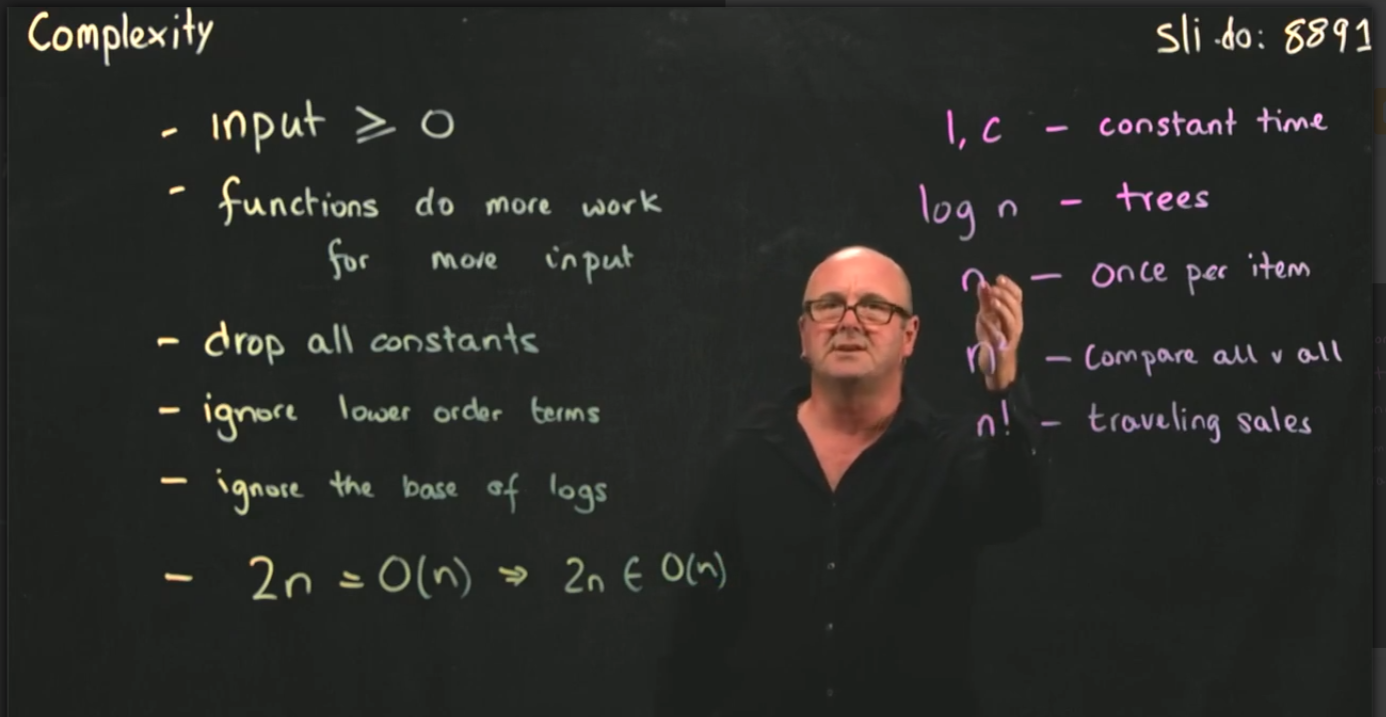 Complexity
sli.do: 8891
- input ⩾ 0
- functions do more work
for more input
- drop all constants
- ignore lower order terms
- ignore the base of logs
- 2n = O(n) ⇒ 2n ∈ O(n)
1, c - constant time
log n - trees
n - once per item
n² - Compare all v all
n! - traveling sales